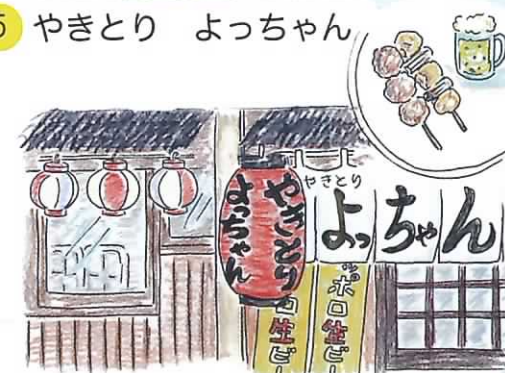 5 やきとり よっちゃん
やきとり
よっちゃん
やきとり
よっちゃん
生ビ
ポロ生ビ